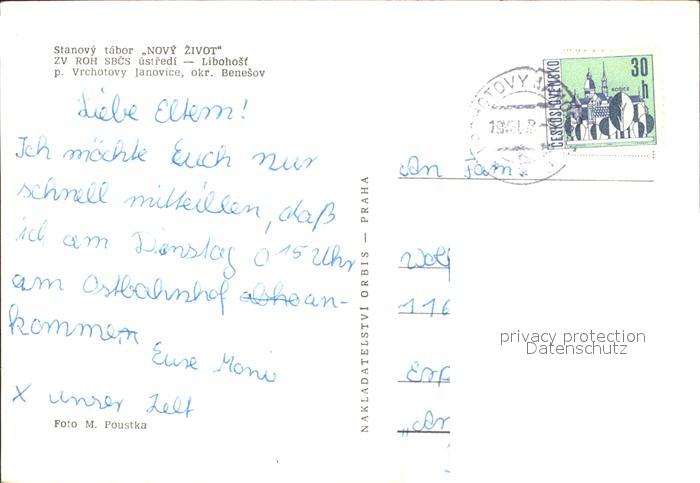 Stanový tábor „NOVÝ ŽIVOT"
ZV ROH SBČS ústředí — Libohošť
p. Vrchotovy Janovice, okr. Benešov
Liebe Eltern!
Ich möchte Euch nur
schnell mitteillen, daß
ich am Dienstag 0 15 Uhr
am Ostbahnhof an-
komme
Eure Moni
X unser Zelt
Foto M. Poustka
NAKLADATELSTVÍ ORBIS — PRAHA
ČESKOSLOVENSKO
30 h
KOŠICE
An Fam
116
privacy protection
Datenschutz